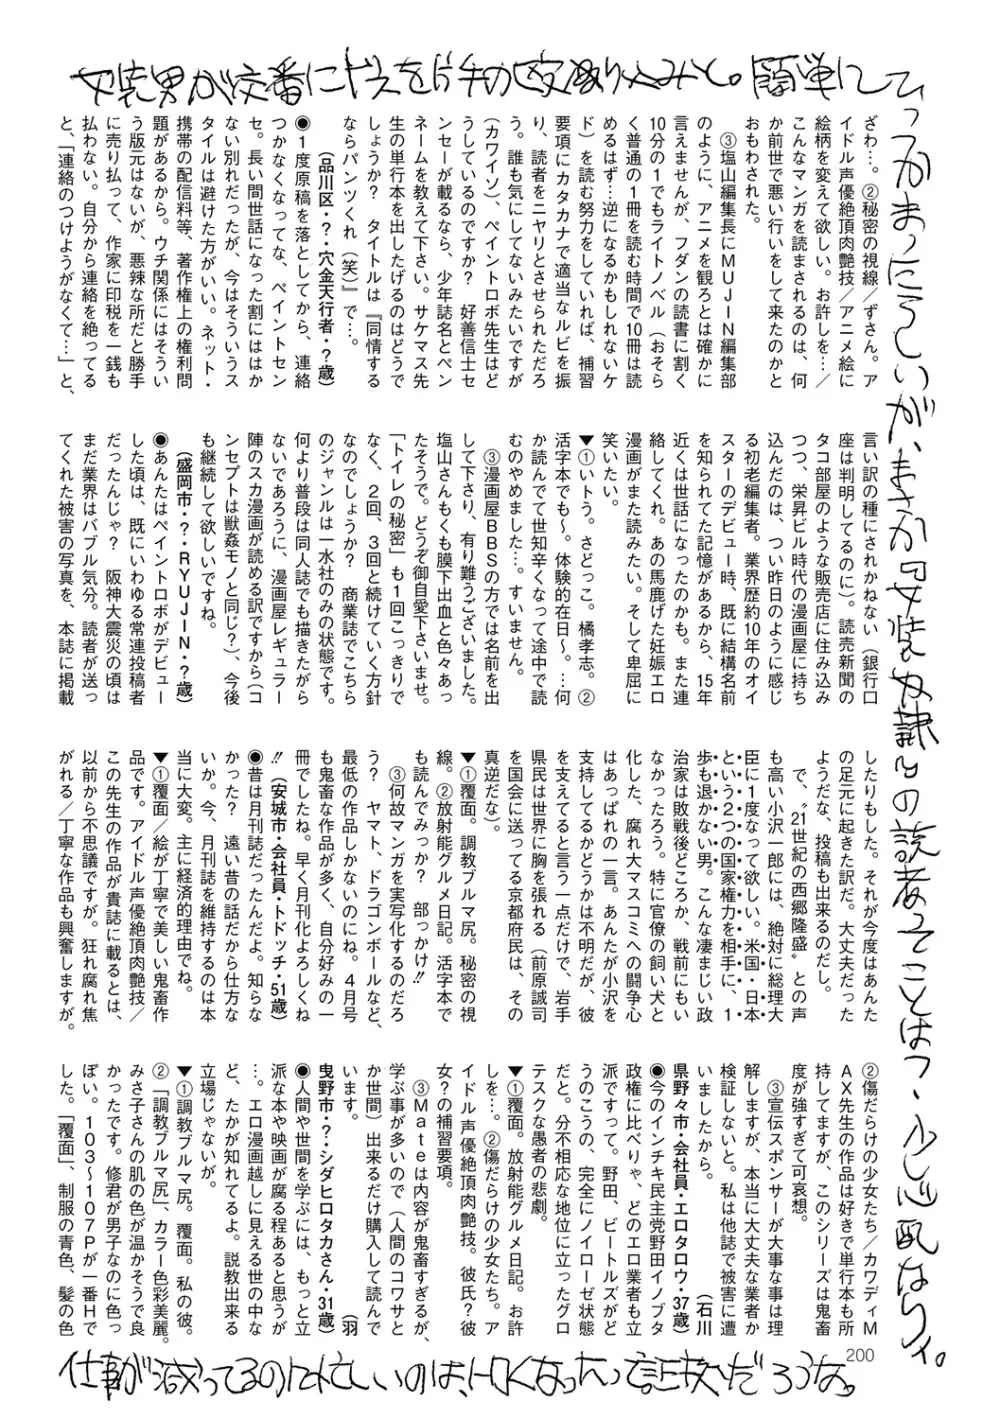 女装男が交番にドスを片手の殴り込みと。簡単に
ひっつかまったらしいが、まさか
ざわ…。②秘密の視線／ずさん。ア
イドル声優絶頂肉艶技／アニメ絵に
絵柄を変えて欲しい。お許しを…／
こんなマンガを読まされるのは、何
か前世で悪い行いをして来たのかと
おもわされた。
③塩山編集長にMUJIN編集部
のように、アニメを観ろとは確かに
言えませんが、フダンの読書に割く
10分の1でもライトノベル（おそら
く普通の1冊を読む時間で10冊は読
めるはず…逆になるかもしれないケ
ド）を読む努力をしていれば、補習
要項にカタカナで適当なルビを振
り、読者をニヤリとさせられただろ
う。誰も気にしてないみたいですが
（カワイソ）、ペイントロボ先生はど
うしているのですか？　好善信士セ
ンセーが載るなら、少年誌名とペン
ネームを教えて下さい。サケマス先
生の単行本を出したげるのはどうで
しょうか？　タイトルは『同情する
ならパンツくれ（笑）』で…。
（品川区・？・穴金天行者・？歳）
●1度原稿を落としてから、連絡
つかなくなってな、ペイントセン
セ。長い間世話になった割にははか
ない別れだったが、今はそういうス
タイルは避けた方がいい。ネット・
携帯の配信料等、著作権上の権利問
題があるから。ウチ関係にはそうい
う版元はないが、悪辣な所だと勝手
に売り払って、作家に印税を一銭も
払わない。自分から連絡を絶ってる
と、「連絡のつけようがなくて…」と、
言い訳の種にされかねない（銀行口
座は判明してるのに）。読売新聞の
タコ部屋のような販売店に住み込み
つつ、栄昇ビル時代の漫画屋に持ち
込んだのは、つい昨日のように感じ
る初老編集者。業界歴約10年のオイ
スターのデビュー時、既に結構名前
を知られてた記憶があるから、15年
近くは世話になったのかも。また連
絡してくれ。あの馬鹿げた妊娠エロ
漫画がまた読みたい。そして卑屈に
笑いたい。
▼①いトう。さどっこ。橘孝志。②
活字本でも～。体験的在日～。…何
か読んでて世知辛くなって途中で読
むのやめました…。すいません。
③漫画屋BBSの方では名前を出
して下さり、有り難うございました。
塩山さんもくも膜下出血と色々あっ
たそうで。どうぞ御自愛下さいませ。
「トイレの秘密」も1回こっきりで
なく、2回、3回と続けていく方針
なのでしょうか？　商業誌でこちら
のジャンルは一水社のみの状態です。
何より普段は同人誌でも描きたがら
ないであろうに、漫画屋レギュラー
陣のスカ漫画が読める訳ですから（コ
ンセプトは獣姦モノと同じ？）、今後
も継続して欲しいですね。
（盛岡市・？・RYUJIN・？歳）
●あんたはペイントロボがデビュー
した頃は、既にいわゆる常連投稿者
だったんじゃ？　阪神大震災の頃は
まだ業界はバブル気分。読者が送っ
てくれた被害の写真を、本誌に掲載
したりもした。それが今度はあんた
の足元に起きた訳だ。大丈夫だった
ようだな、投稿も出来るのだし。
で、〝21世紀の西郷隆盛〟との声
も高い小沢一郎には、絶対に総理大
臣に1度なって欲しい。米国・日本
という2つの国家権力を相手に、1
歩も退かない男。こんな凄まじい政
治家は敗戦後どころか、戦前にもい
なかったろう。特に官僚の飼い犬と
化した、腐れ大マスコミへの闘争心
はあっぱれの一言。あんたが小沢を
支持してるかどうかは不明だが、彼
を支えてると言う一点だけで、岩手
県民は世界に胸を張れる（前原誠司
を国会に送ってる京都府民は、その
真逆だな）。
▼①覆面。調教ブルマ尻。秘密の視
線。②放射能グルメ日記。活字本で
も読んでみっか？　部っけ!!
③何故マンガを実写化するのだろ
う？　ヤマト、ドラゴンボールなど、
最低の作品しかないのにね。4月号
も鬼畜な作品が多く、自分好みの一
冊でしたね。早く月刊化よろしくね
!!（安城市・会社員・トドッチ・51歳）
●昔は月刊誌だったんだよ。知らな
かった？　遠い昔の話だから仕方な
いか。今、月刊誌を維持するのは本
当に大変。主に経済的理由でね。
▼①覆面／絵が丁寧で美しい鬼畜作
品です。アイドル声優絶頂肉艶技／
この先生の作品が貴誌に載るとは、
以前から不思議ですが。狂れ腐れ焦
がれる／丁寧な作品も興奮しますが。
②傷だらけの少女たち／カワディM
AX先生の作品は好きで単行本も所
持してますが、このシリーズは鬼畜
度が強すぎて可哀想。
③宣伝スポンサーが大事な事は理
解しますが、本当に大丈夫な業者か
検証しないと。私は他誌で被害に遭
いましたから。（石川
県野々市・会社員・エロタロウ・37歳）
●今のインチキ民主党野田イノブタ
政権に比べりゃ、どのエロ業者も立
派ですって。野田、ビートルズがど
うのこうの、完全にノイローゼ状態
だと。分不相応な地位に立ったグロ
テスクな愚者の悲劇。
▼①覆面。放射能グルメ日記。お許
しを…。②傷だらけの少女たち。ア
イドル声優絶頂肉艶技。彼氏？彼
女？の補習要項。
③Mateは内容が鬼畜すぎるが、
学ぶ事が多いので（人間のコワサと
か世間）出来るだけ購入して読んで
います。（羽
曳野市・？・シダヒロタカさん・31歳）
●人間や世間を学ぶには、もっと立
派な本や映画が腐る程あると思うが
…。エロ漫画越しに見える世の中な
ど、たかが知れてるよ。説教出来る
立場じゃないが。
▼①調教ブルマ尻。覆面。私の彼。
②「調教ブルマ尻」、カラー色彩美麗。
みさ子さんの肌の色が温かそうで良
かったです。修君が男子なのに色っ
ぽい。103～107Pが一番Hで
した。「覆面」、制服の青色、髪の色
200
仕事が減ってるのに忙しいのは、トロくなったって証拠だろうな。